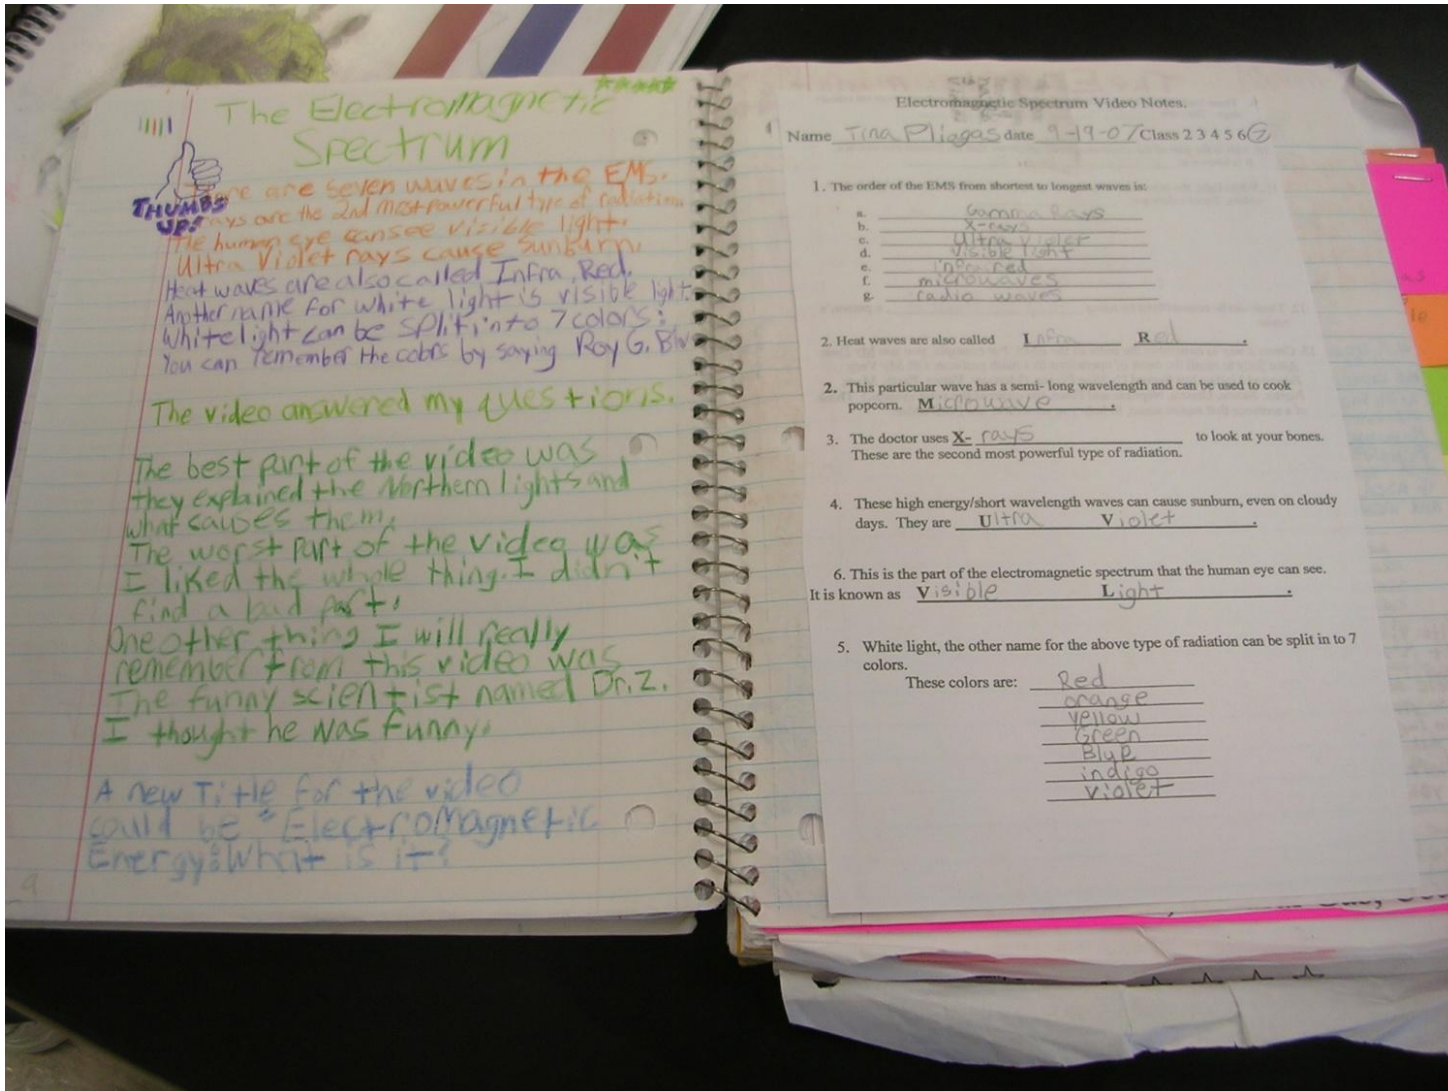 The Electromagnetic
Spectrum
THUMBS
UP!
are seven waves in the EMS.
rays are the 2nd most powerful type of radiation.
The human eye can see visible light.
Ultra Violet rays cause sunburn.
Heat waves are also called Infra Red.
Another name for white light is visible light.
White light can be split into 7 colors:
You can remember the colors by saying Roy G. Biv
The video answered my questions.
The best part of the video was
they explained the Northern lights and
what causes them.
The worst part of the video was
I liked the whole thing. I didn't
find a bad part.
One other thing I will really
remember from this video was
The funny scientist named Dr. Z.
I thought he was funny.
A new Title for the video
could be "ElectroMagnetic
Energy: What is it?
9
Electromagnetic Spectrum Video Notes.
Name Tina Pliagas date 9-19-07 Class 2 3 4 5 6 7
1. The order of the EMS from shortest to longest waves is:
a. Gamma Rays
b. X-rays
c. Ultra Violet
d. Visible light
e. infrared
f. microwaves
g. radio waves
2. Heat waves are also called Infra Red.
2. This particular wave has a semi- long wavelength and can be used to cook
popcorn. Microwave.
3. The doctor uses X- rays to look at your bones.
These are the second most powerful type of radiation.
4. These high energy/short wavelength waves can cause sunburn, even on cloudy
days. They are Ultra Violet.
6. This is the part of the electromagnetic spectrum that the human eye can see.
It is known as Visible Light.
5. White light, the other name for the above type of radiation can be split in to 7
colors.
These colors are: Red
orange
yellow
Green
Blue
indigo
violet